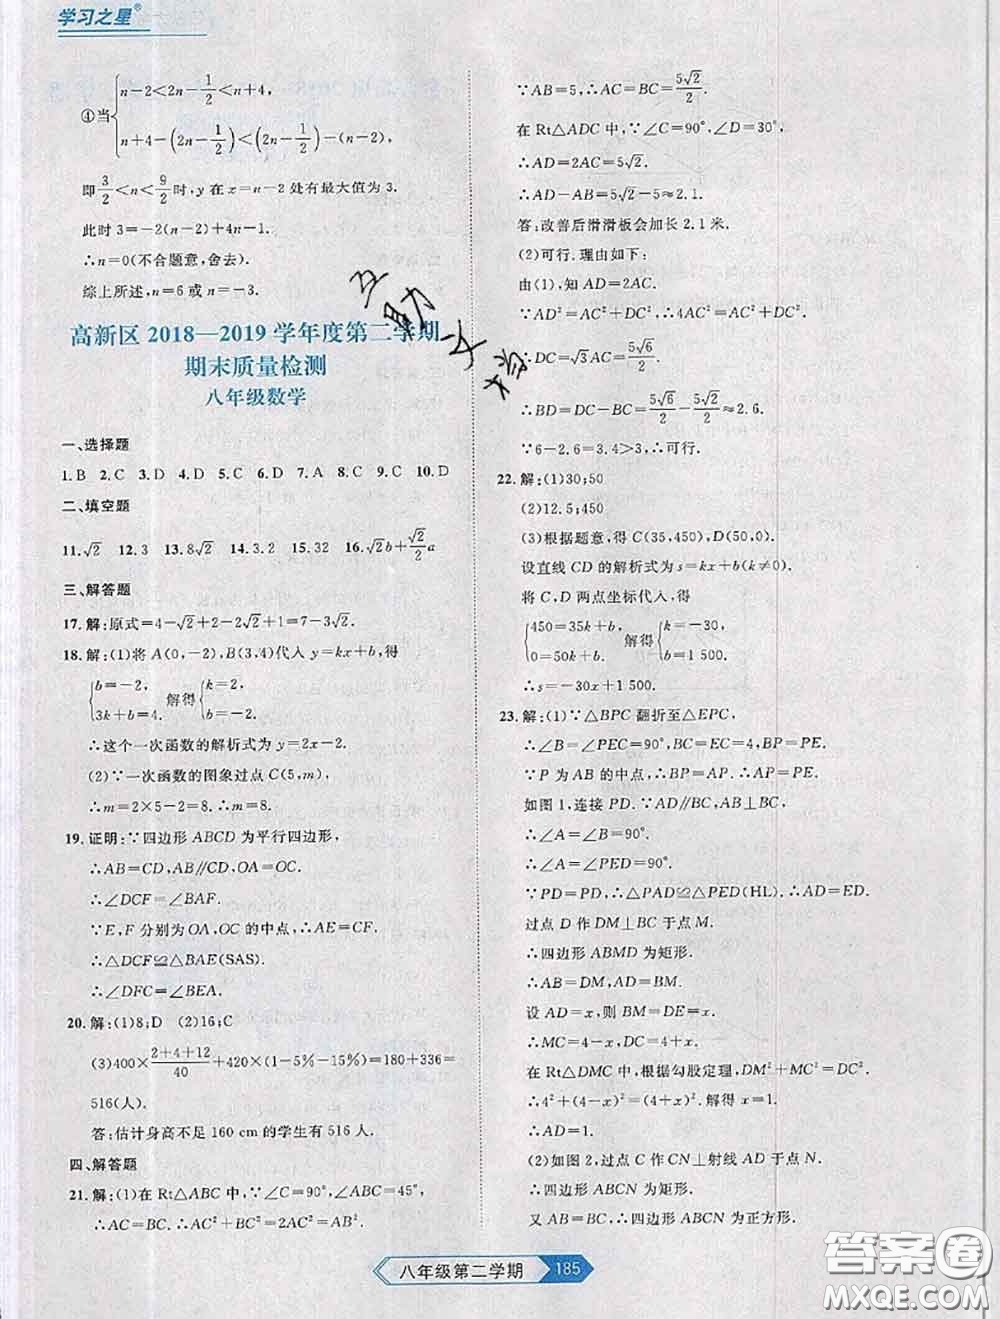 学习之星®
①当{n-2<2n-1/2<n+4,
n+4-(2n-1/2)<(2n-1/2)-(n-2),
即3/2<n<9/2时,y在x=n-2处有最大值为3.
此时3=-2(n-2)+4n-1.
∴n=0(不合题意,舍去).
综上所述,n=6或n=-3.
高新区2018—2019学年度第二学期
期末质量检测
八年级数学
一、选择题
1.B 2.C 3.D 4.D 5.C 6.D 7.A 8.C 9.C 10.D
二、填空题
11.√2 12.3 13.8√2 14.3.2 15.32 16.√2b+√2/2a
三、解答题
17.解:原式=4-√2+2-2√2+1=7-3√2.
18.解:(1)将A(0,-2),B(3,4)代入y=kx+b,得
{b=-2, 3k+b=4. 解得{k=2, b=-2.
∴这个一次函数的解析式为y=2x-2.
(2)∵一次函数的图象过点C(5,m),
∴m=2×5-2=8.∴m=8.
19.证明:∵四边形ABCD为平行四边形,
∴AB=CD,AB∥CD,OA=OC.
∴∠DCF=∠BAE.
∵E,F分别为OA,OC的中点,∴AE=CF.
∴△DCF≌△BAE(SAS).
∴∠DFC=∠BEA.
20.解:(1)8;D (2)16;C
(3)400×(2+4+12)/40+420×(1-5%-15%)=180+336=
516(人).
答:估计身高不足160 cm的学生有516人.
四、解答题
21.解:(1)在Rt△ABC中,∵∠C=90°,∠ABC=45°,
∴AC=BC.∴AC²+BC²=2AC²=AB².
∵AB=5,∴AC=BC=5√2/2.
在Rt△ADC中,∵∠C=90°,∠D=30°,
∴AD=2AC=5√2.
∴AD-AB=5√2-5≈2.1.
答:改善后滑滑板会加长2.1米.
(2)可行.理由如下:
由(1),知AD=2AC.
∵AD²=AC²+DC²,∴4AC²=AC²+DC².
∴DC=√3AC=5√6/2.
∴BD=DC-BC=5√6/2-5√2/2≈2.6.
∵6-2.6=3.4>3,∴可行.
22.解:(1)30;50
(2)12.5;450
(3)根据题意,得C(35,450),D(50,0).
设直线CD的解析式为s=kx+b(k≠0).
将C,D两点坐标代入,得
{450=35k+b, 0=50k+b. 解得{k=-30, b=1 500.
∴s=-30x+1 500.
23.解:(1)∵△BPC翻折至△EPC,
∴∠B=∠PEC=90°,BC=EC=4,BP=PE.
∵P为AB的中点,∴BP=AP.∴AP=PE.
如图1,连接PD.∵AD∥BC,AB⊥BC,
∴∠A=∠B=90°.
∴∠A=∠PED=90°.
∵PD=PD,∴△PAD≌△PED(HL).∴AD=ED.
过点D作DM⊥BC于点M.
∴四边形ABMD为矩形.
∴AB=DM,AD=BM.
设AD=x,则BM=DE=x.
∴MC=4-x,DC=4+x.
在Rt△DMC中,根据勾股定理,DM²+MC²=DC².
∴4²+(4-x)²=(4+x)².解得x=1.
∴AD=1.
(2)如图2,过点C作CN⊥射线AD于点N,
∴四边形ABCN为矩形.
又AB=BC,∴四边形ABCN为正方形.
八年级第二学期 185
互助文档
答案卷
MXQE.COM